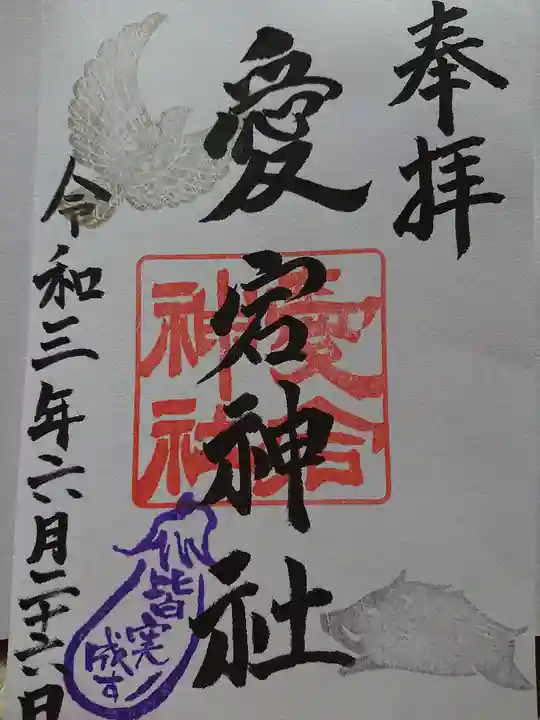 奉拝
愛宕神社
愛宕神社
令和三年六月二十六日
皆実
成す